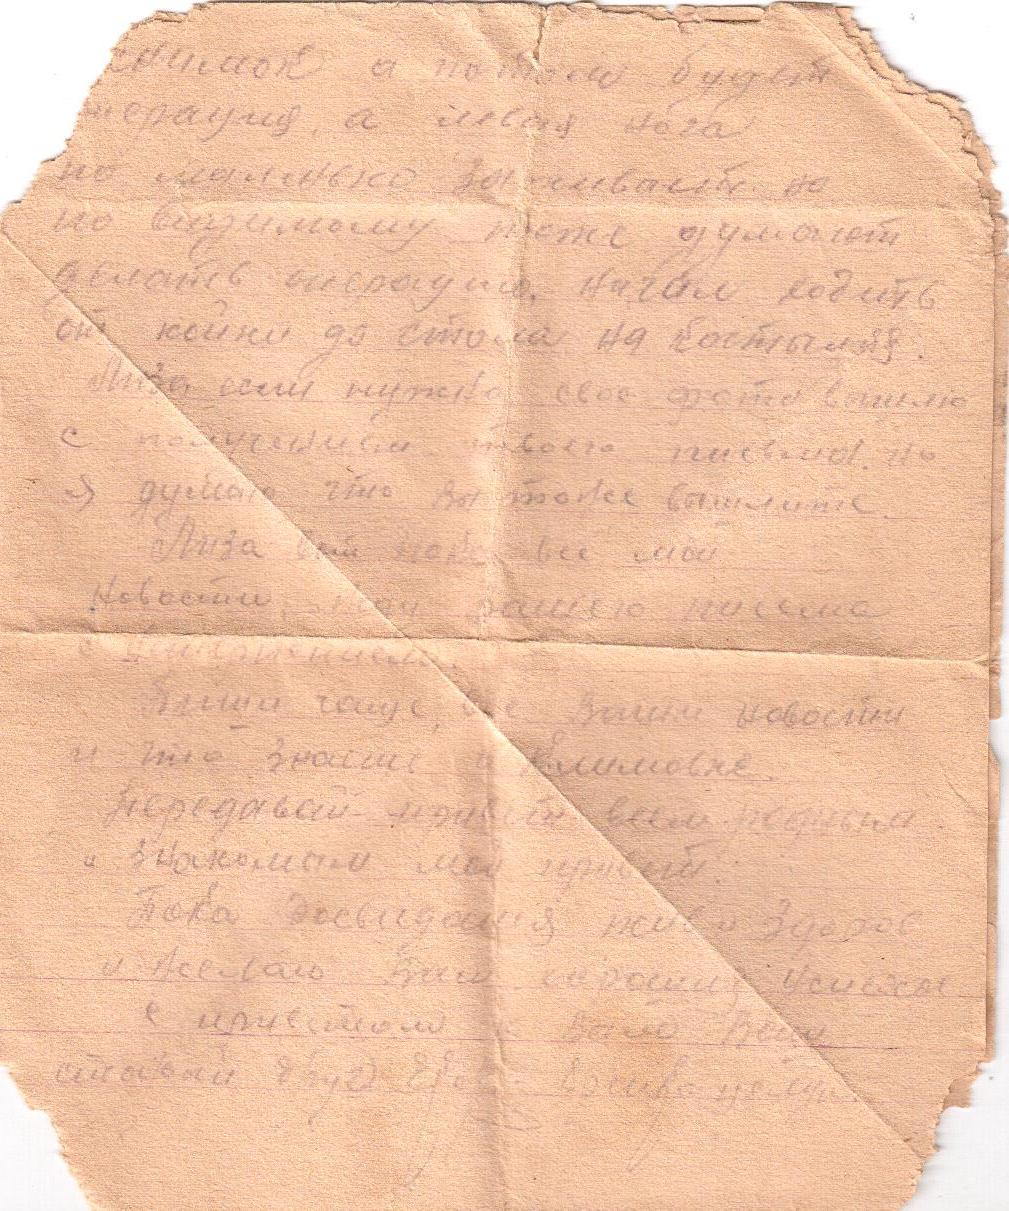 снимок а потом будет
операция, а левая нога
по маленько заживает. но
по видимому тоже думают
делать операцию. Начал ходить
от койки до стола на костылях.
Лиза если нужно свое фото вышлю
с получением твоего письма. но
я думаю что вы тоже вышлите.
Лиза вот пока все мои
новости, жду вашего письма
с нетерпением.
Пиши чаще, все Ваши новости
и что знаеш о Климовке.
Передавай привет всем родным
и знакомым мой привет.
Пока досвидания жив и здоров
и желаю Вам хороших успехов
с приветом к Вам Ваш